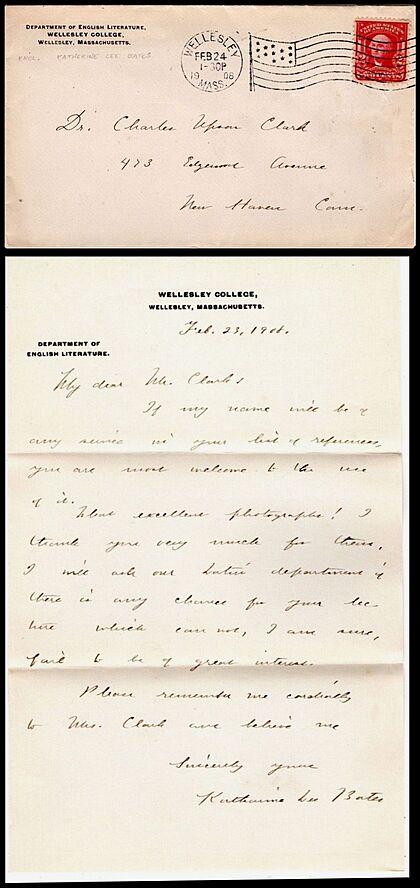 DEPARTMENT OF ENGLISH LITERATURE,
WELLESLEY COLLEGE,
WELLESLEY, MASSACHUSETTS.
ENCL. KATHERINE LEE BATES
WELLESLEY
FEB 24
1-30P
1908
MASS.
Dr. Charles Upson Clark
473 Edgewood Avenue
New Haven Conn.
WELLESLEY COLLEGE,
WELLESLEY, MASSACHUSETTS.
Feb. 23, 1908.
DEPARTMENT OF
ENGLISH LITERATURE.
My dear Mr. Clark:
If my name will be of
any service in your list of references,
you are most welcome to the use
of it.
What excellent photographs! I
thank you very much for them.
I will ask our Latin department if
there is any chance for your lec-
ture which can not, I am sure,
fail to be of great interest.
Please remember me cordially
to Mrs. Clark and believe me
Sincerely yours
Katharine Lee Bates